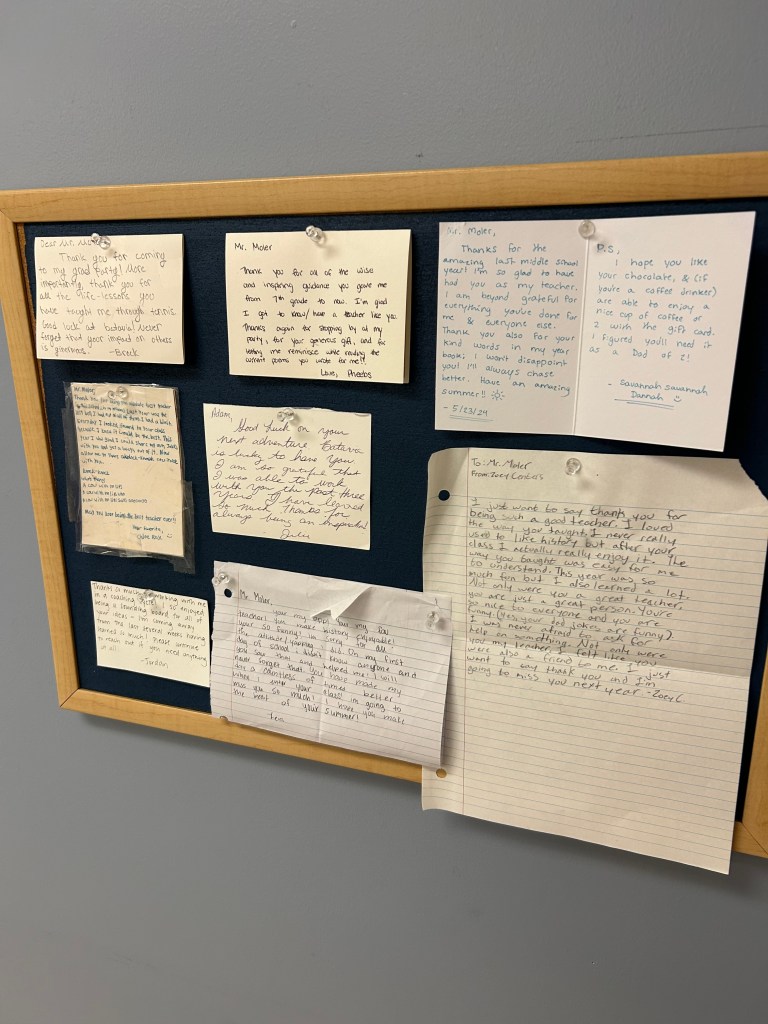 Dear Mr. Moler
Thank you for coming
to my grad party! More
importantly, thank you for
all the life-lessons you
have taught me through tennis.
Good luck at Batavia! Never
forget that your impact on others
is "ginormous."
-Breck
Mr. Moler
Thank you for all of the wise
and inspiring guidance you gave me
from 7th grade to now. I'm glad
I got to know/have a teacher like you.
Thanks again for stopping by at my
party, for your generous gift, and for
letting me reminisce while reading the
current poems you wrote for me!!
Love, Phoebs
Mr. Moler,
Thanks for the
amazing last middle school
year! I'm so glad to have
had you as my teacher.
I am beyond grateful for
everything you've done for
me & everyone else.
Thank you also for your
kind words in my year
book; I won't disappoint
you! I'll always chase
better. Have an amazing
summer!!
- 5/23/24
P.S,
I hope you like
your chocolate, & (if
you're a coffee drinker)
are able to enjoy a
nice cup of coffee or
2 with the gift card.
I figured you'll need it
as a Dad of 2!
- Savannah Savannah
Dannah
Mr. Moler,
Thank you for being the absolute best teacher
Knock-Knock
Who's There?
Adam,
Good luck on your
next adventure. Batavia
is lucky to have you.
I am so grateful that
I was able to work
with you the past three
years. I have learned
so much. Thanks for
always being an inspiration!
Julie
To: Mr. Moler
From: Zoey
I just want to say thank you for
being such a good teacher. I loved
the way you taught. I never really
used to like history but after your
class I actually really enjoy it. The
way you taught was easy for me
to understand. This year was so
much fun but I also learned a lot.
Not only were you a great teacher,
you are just a great person. You're
so nice to everyone and you are
funny. (Yes, your dad jokes are funny).
I was never afraid to ask for
help on something. Not only were
you my teacher, I felt like you
were also a friend to me. I just
want to say thank you and I'm
going to miss you next year -Zoey C
Thanks so much for working with me
in a coaching role! I so enjoyed
being a sounding board for all of
your ideas - I'm coming away
from the last several weeks having
learned so much! Please continue
to reach out if you need anything
at all.
-Jordan
Mr. Moler,
teacher! You make history enjoyable!
your so funny! im sorry for all
the attitude/yapping I did. On my first
day of school i didn't know anyone and
you saw that and helped me! I will
never forget that. You have made my
day a countless of times better
when I enter your class! im going to
miss you so much! I hope you make
the most of your summer!